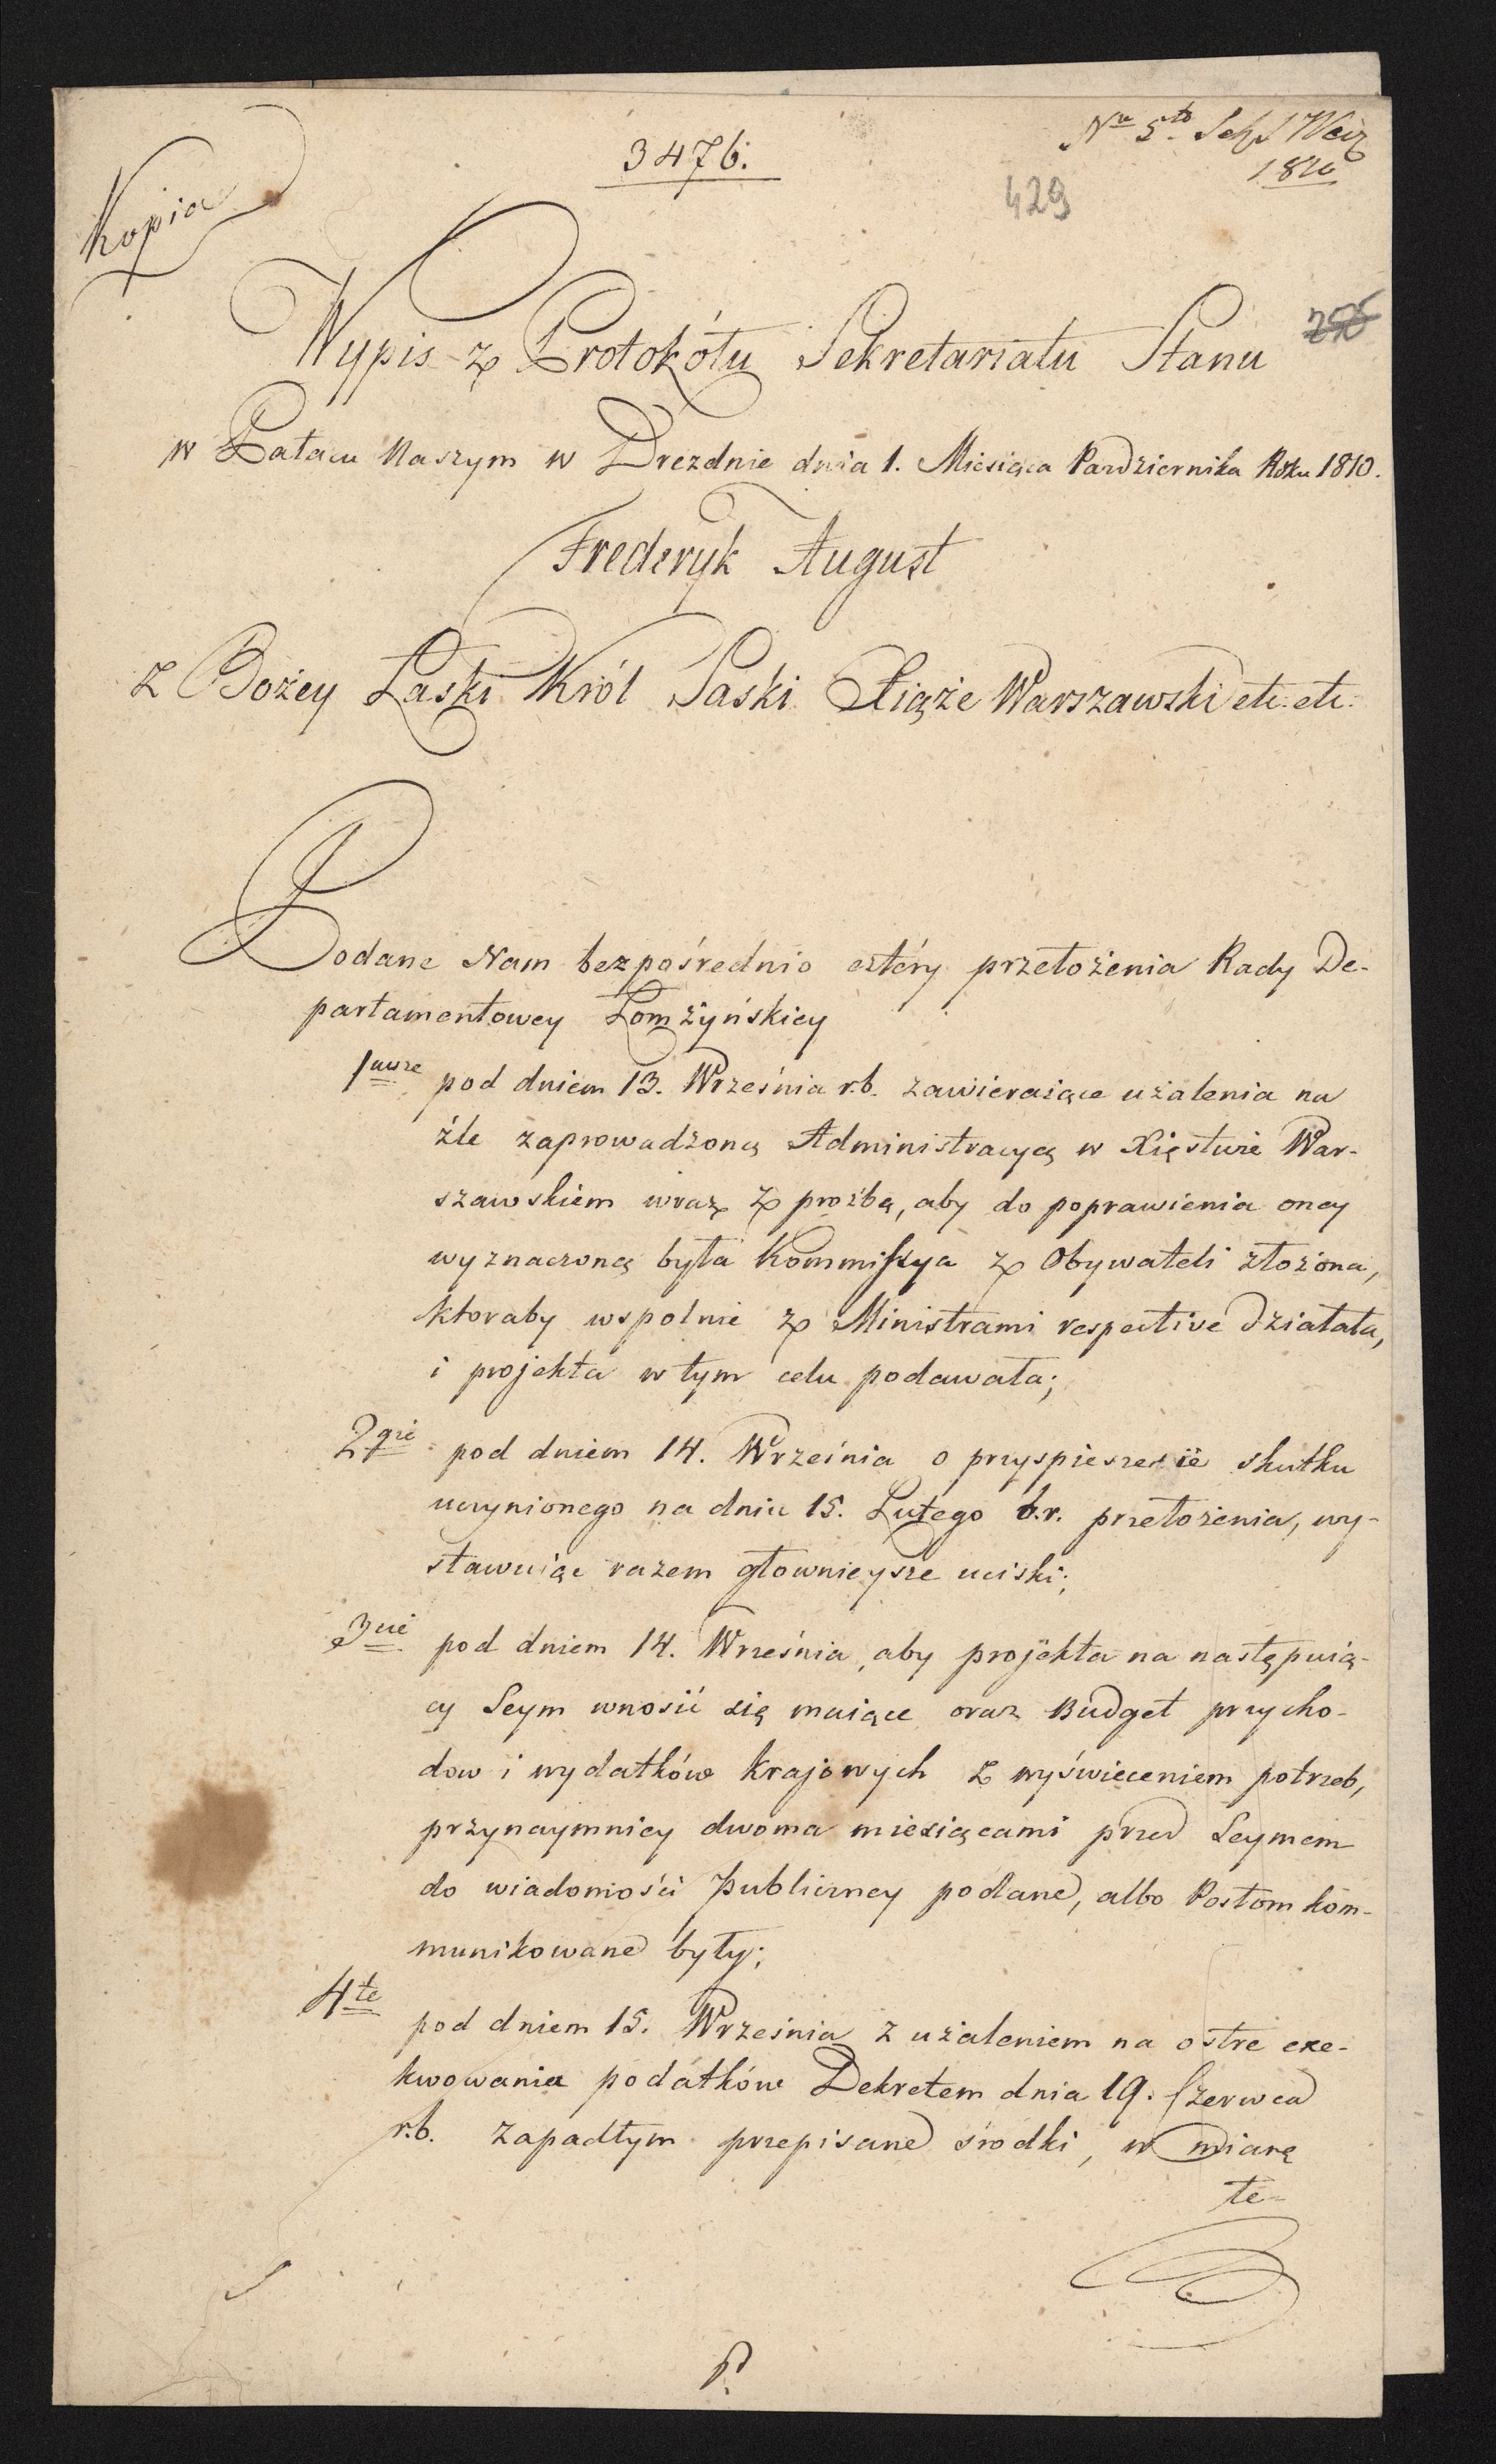 Kopia
3476.
Nro 5to
1810
429
256
Wypis z Protokółu Sekretariatu Stanu
w Pałacu Naszym w Dreznie dnia 1. Miesiąca Pazdziernika Roku 1810.
Frederyk August
z Bożey Łaski Król Saski Xiąże Warszawski etc: etc:
Podane Nam bezpośrednio cztéry przełożenia Rady De-
partamentowey Łomżyńskiey
1wsze pod dniem 13. Września r.b. zawieraiące użalenia na
źle zaprowadzoną Administracyą w Xięstwie War-
szawskiem wraz z proźbą, aby do poprawienia oney
wyznaczoną była Kommissya z Obywateli złożona,
ktoraby wspolnie z Ministrami respective działała,
i projekta w tym celu podawała;
2gie pod dniem 14. Września o przyspieszenie skutku
uczynionego na dniu 15. Lutego b.r. przełożenia, wy-
stawuiąc razem głownieysze uciski;
3cie pod dniem 14. Września, aby projekta na następuią-
cy Seym wnosić się maiące oraz Budget przycho-
dow i wydatków krajowych z wyświeceniem potrzeb,
przynaymniey dwoma miesiącami przed Seymem
do wiadomości publiczney podane, albo Posłom kom-
munikowane były;
4te pod dniem 15. Września z użaleniem na ostre exe-
kwowania podatków Dekretem dnia 19. Czerwca
r.b. zapadłym przepisane środki, w miarę
te-